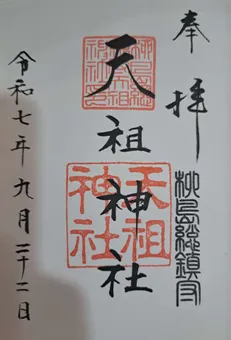 奉拝
柳島総鎮守
天祖神社
天祖神社
令和七年九月二十二日